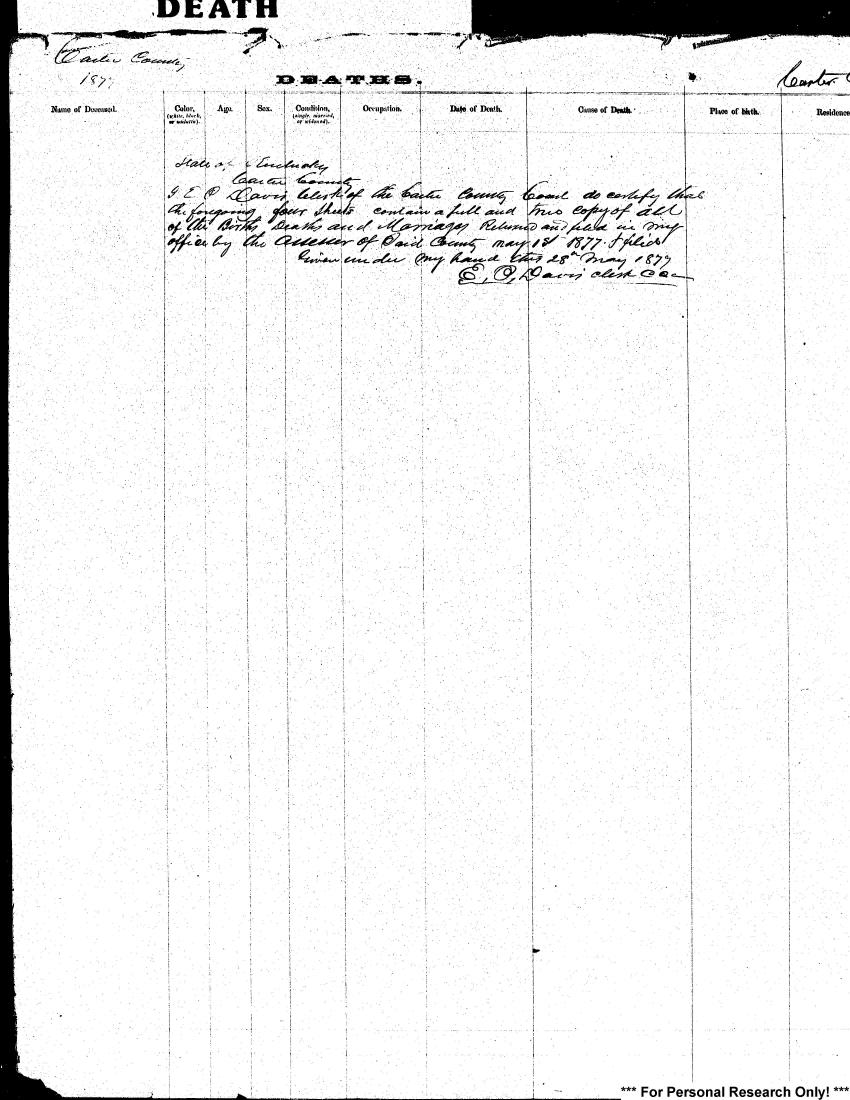 DEATH
Carter County
1877
DEATHS.
Carter
Name of Deceased.
Color,
(white, black,
or mulatto).
Age.
Sex.
Condition,
(single, married,
or widowed).
Occupation.
Date of Death.
Cause of Death.
Place of birth.
Residence
State of Kentucky
Carter County
I E. P. Davis, Clerk of the Carter County Court do certify that
the foregoing four Sheets contain a full and true copy of all
of the Births, Deaths and Marriages Returned and filed in my
office by the Assessor of Said County May 1st 1877
Given under my hand this 28th May 1877
E. P. Davis clerk
*** For Personal Research Only! ***